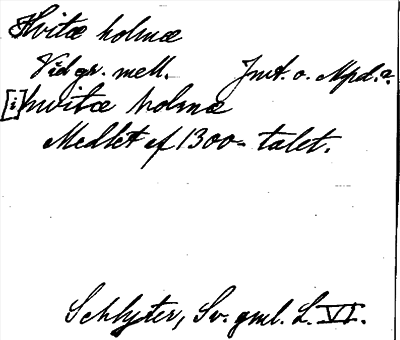 Hvitæ holmæ
Vid gr. mell. Jmt. o. Mpd.
[i] hwitæ holmæ
Medlet af 1300-talet.
Schlyter, Sv. gml. L. VI.